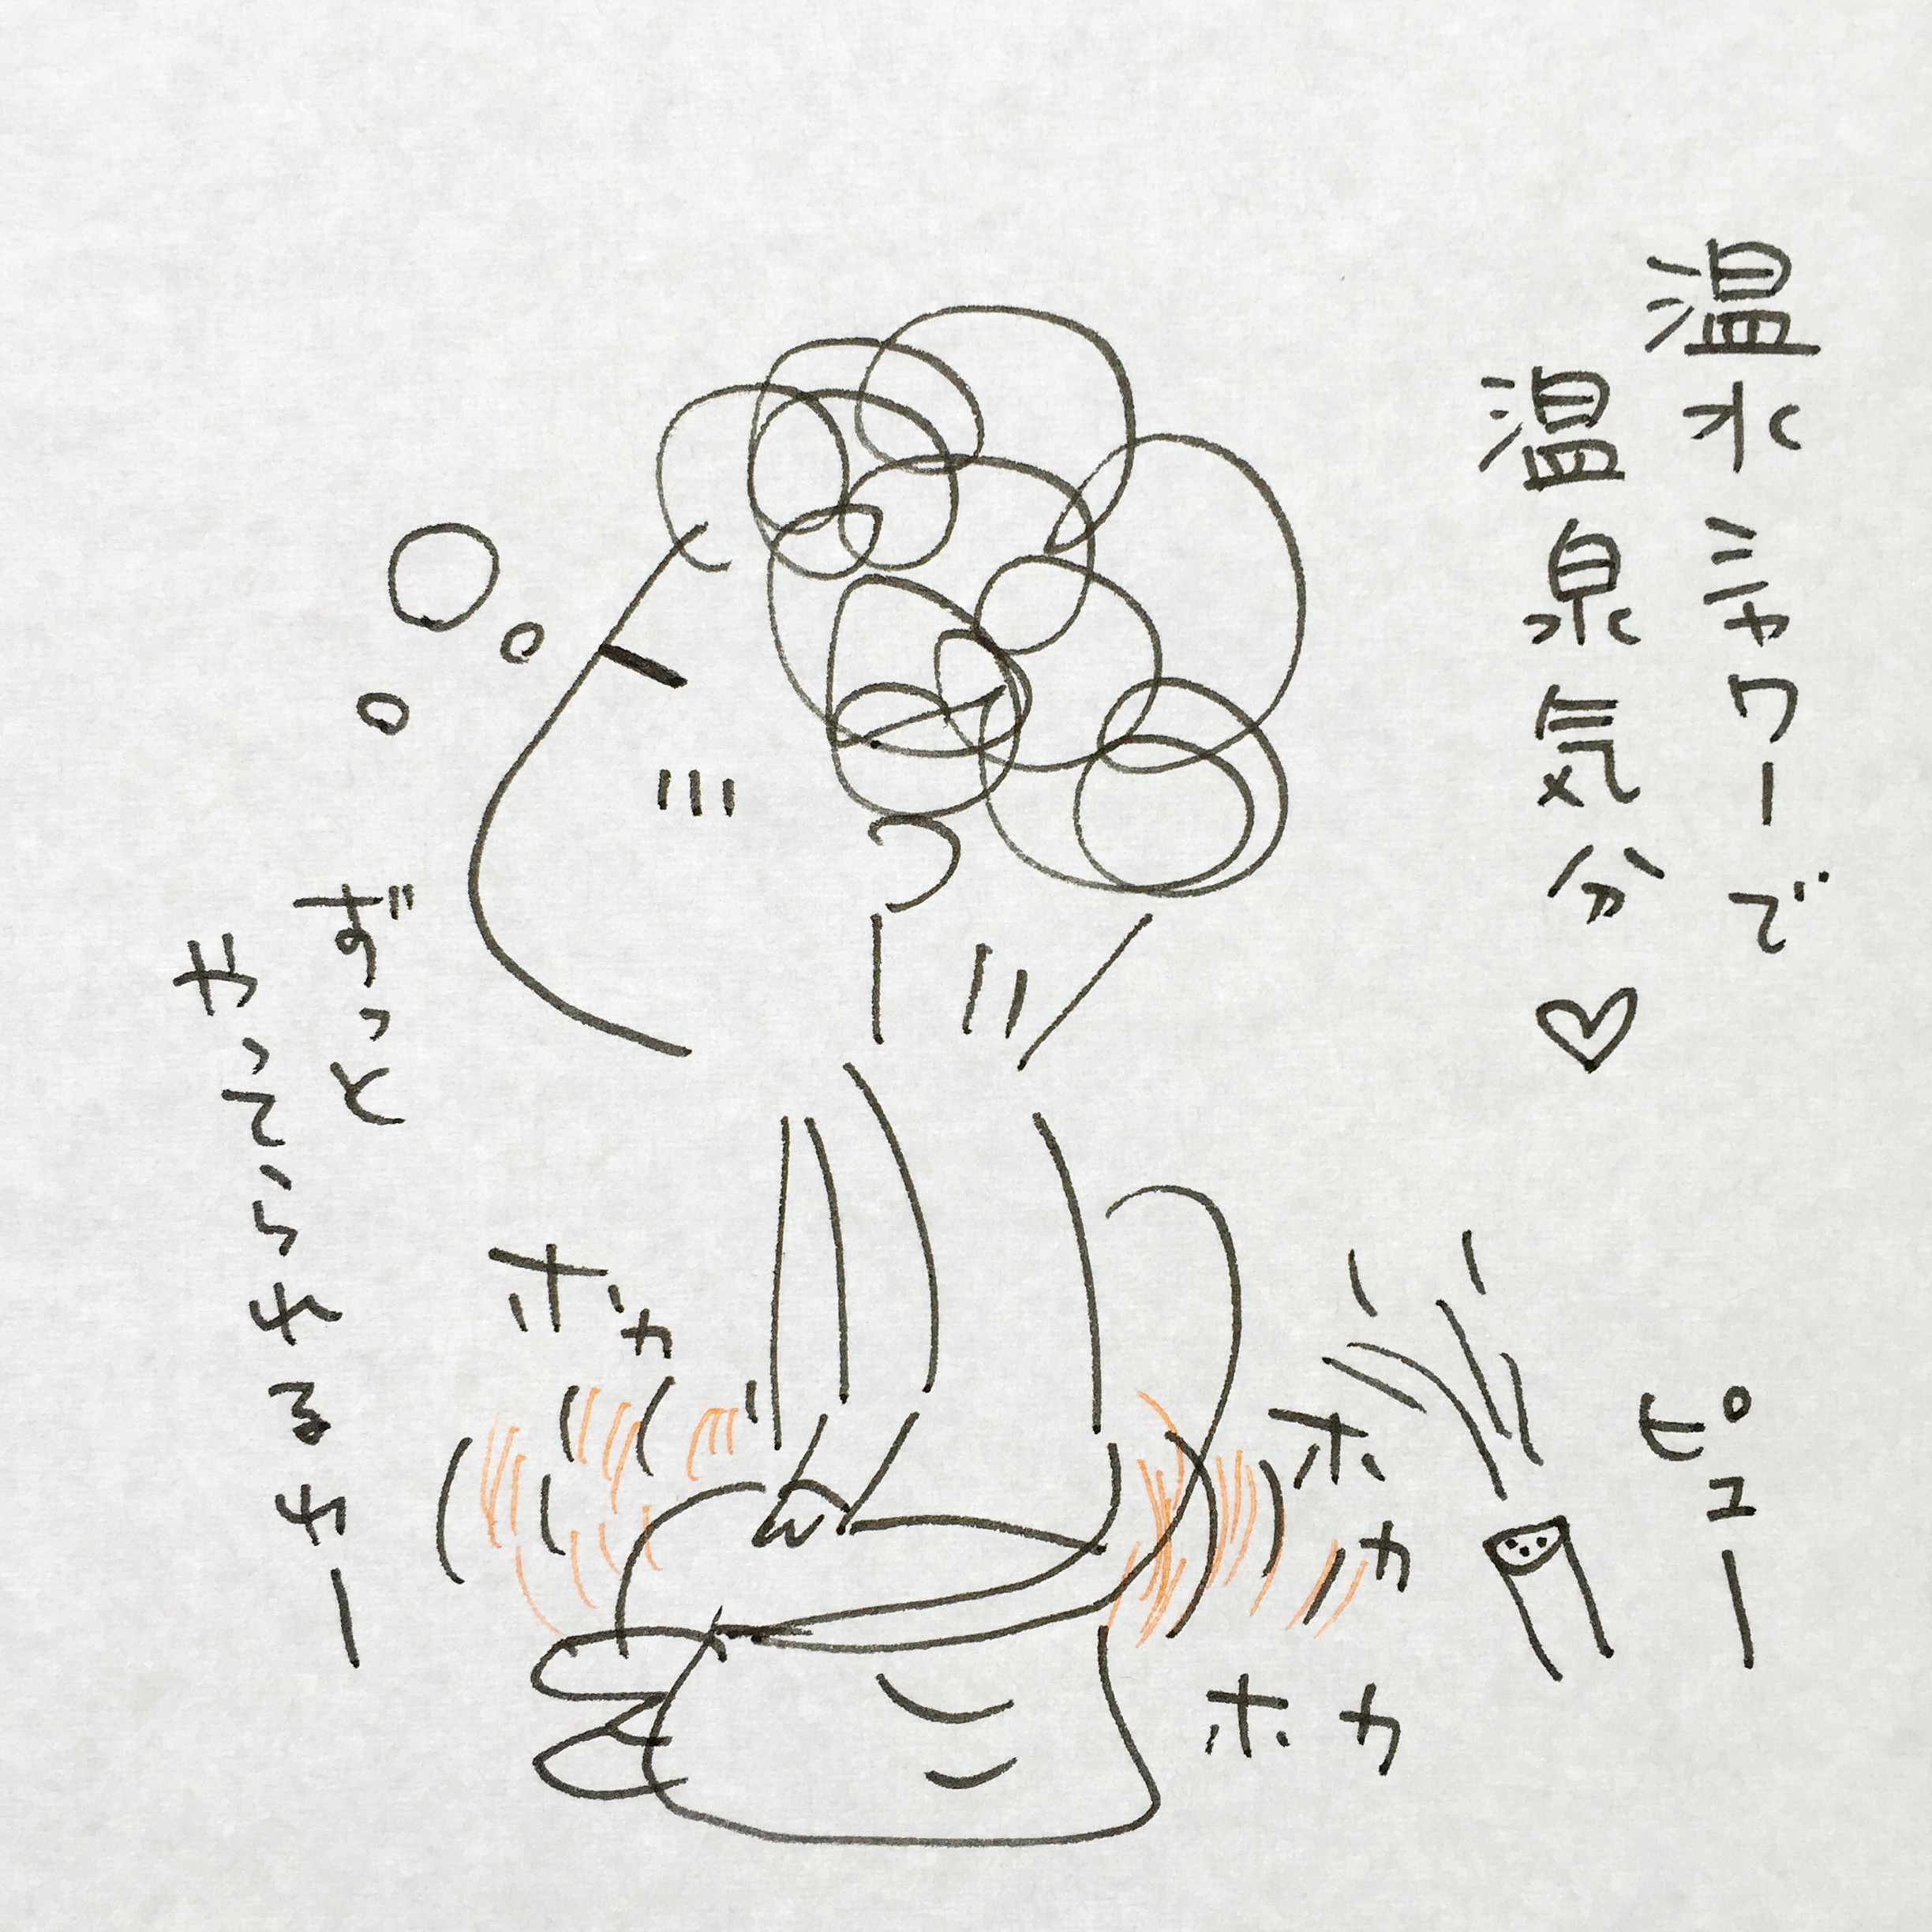 温水シャワーで
温泉気分♡
ピュー
ホカ
ホカ
ホカ
ずっと
やってられるわー